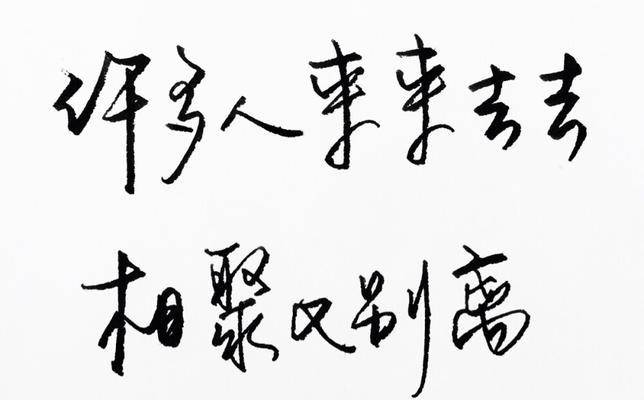 许多人来来去去
相聚又别离